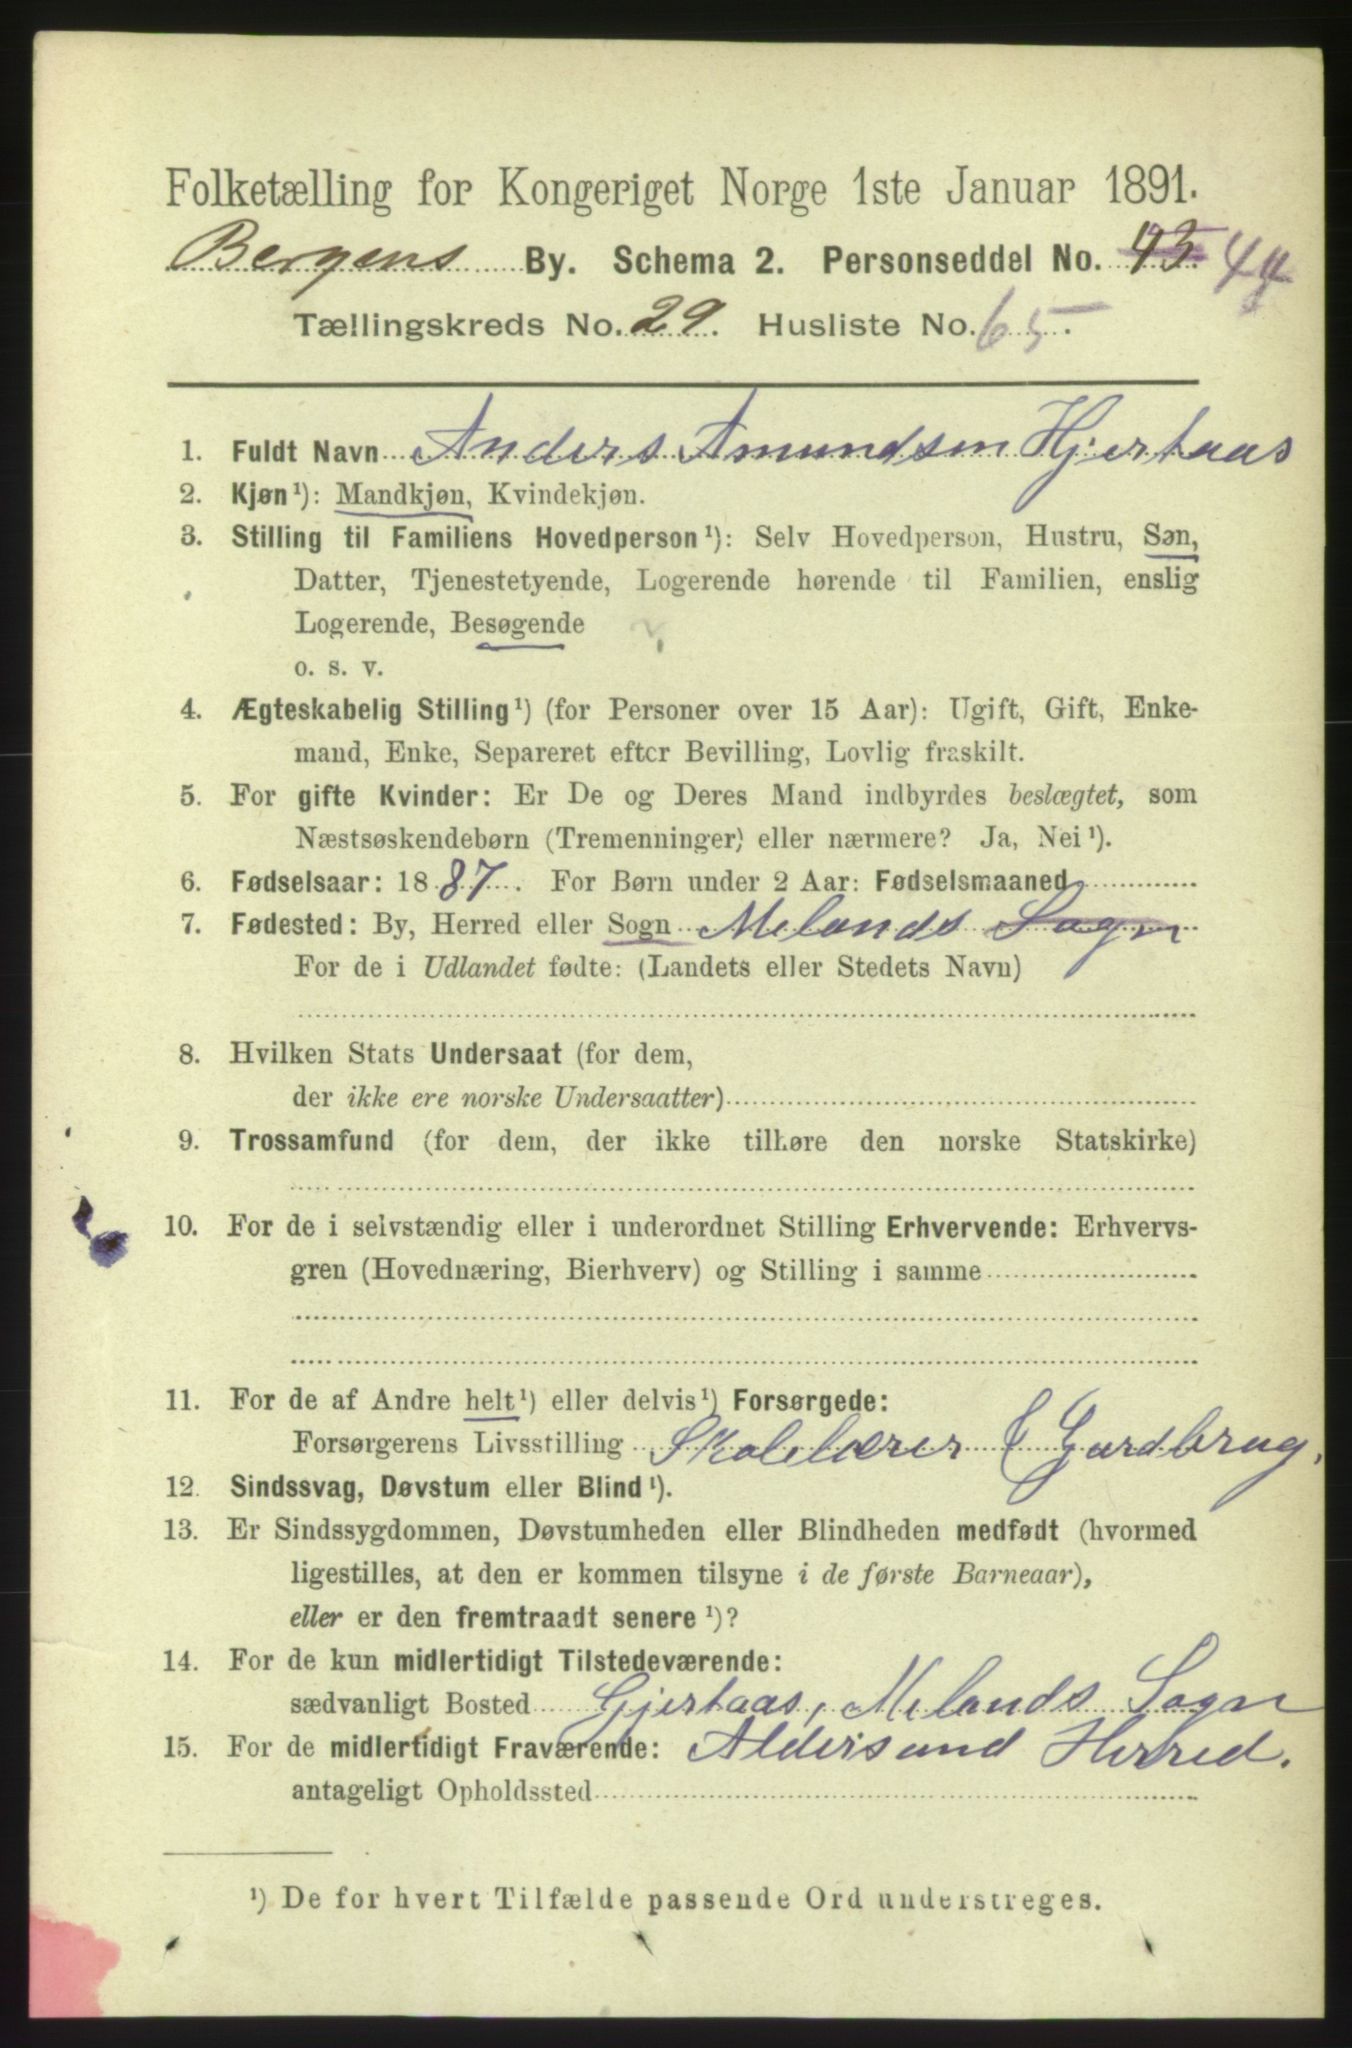 Folketælling for Kongeriget Norge 1ste Januar 1891.
Bergens By. Schema 2. Personseddel No. 43. 44
Tællingskreds No. 29. Husliste No. 65.
1. Fuldt Navn Anders Amundsen Hjertaas
2. Kjøn ¹): Mandkjøn, Kvindekjøn.
3. Stilling til Familiens Hovedperson ¹): Selv Hovedperson, Hustru, Søn,
Datter, Tjenestetyende, Logerende hørende til Familien, enslig
Logerende, Besøgende
o. s. v.
4. Ægteskabelig Stilling ¹) (for Personer over 15 Aar): Ugift, Gift, Enke-
mand, Enke, Separeret efter Bevilling, Lovlig fraskilt.
5. For gifte Kvinder: Er De og Deres Mand indbyrdes beslægtet, som
Næstsøskendebørn (Tremenninger) eller nærmere? Ja, Nei ¹).
6. Fødselsaar: 1887. For Børn under 2 Aar: Fødselsmaaned
7. Fødested: By, Herred eller Sogn Melands Sogn
For de i Udlandet fødte: (Landets eller Stedets Navn)
8. Hvilken Stats Undersaat (for dem,
der ikke ere norske Undersaatter)
9. Trossamfund (for dem, der ikke tilhøre den norske Statskirke)
10. For de i selvstændig eller i underordnet Stilling Erhvervende: Erhvervs-
gren (Hovednæring, Bierhverv) og Stilling i samme
11. For de af Andre helt ¹) eller delvis ¹) Forsørgede:
Forsørgerens Livsstilling Skolelærer & Gardbrug.
12. Sindssvag, Døvstum eller Blind ¹).
13. Er Sindssygdommen, Døvstumheden eller Blindheden medfødt (hvormed
ligestilles, at den er kommen tilsyne i de første Barneaar),
eller er den fremtraadt senere ¹)?
14. For de kun midlertidigt Tilstedeværende:
sædvanligt Bosted Gjertaas, Melands Sogn
15. For de midlertidigt Fraværende: Aldersund Herred.
antageligt Opholdssted
¹) De for hvert Tilfælde passende Ord understreges.